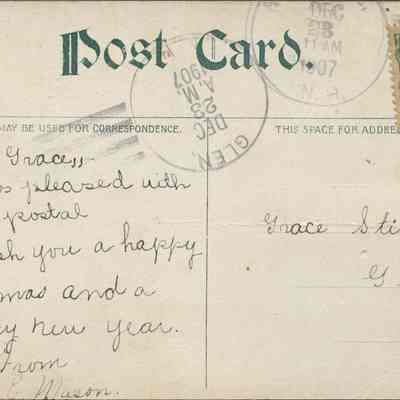 Post Card.
DEC
23
11 AM
1907
N.H.
GLEN,
DEC
23
A.M.
1907
MAY BE USED FOR CORRESPONDENCE.
THIS SPACE FOR ADDRE
Grace,,
pleased with
postal
sh you a happy
mas and a
y new year.
From
Mason.
Grace Sti
G